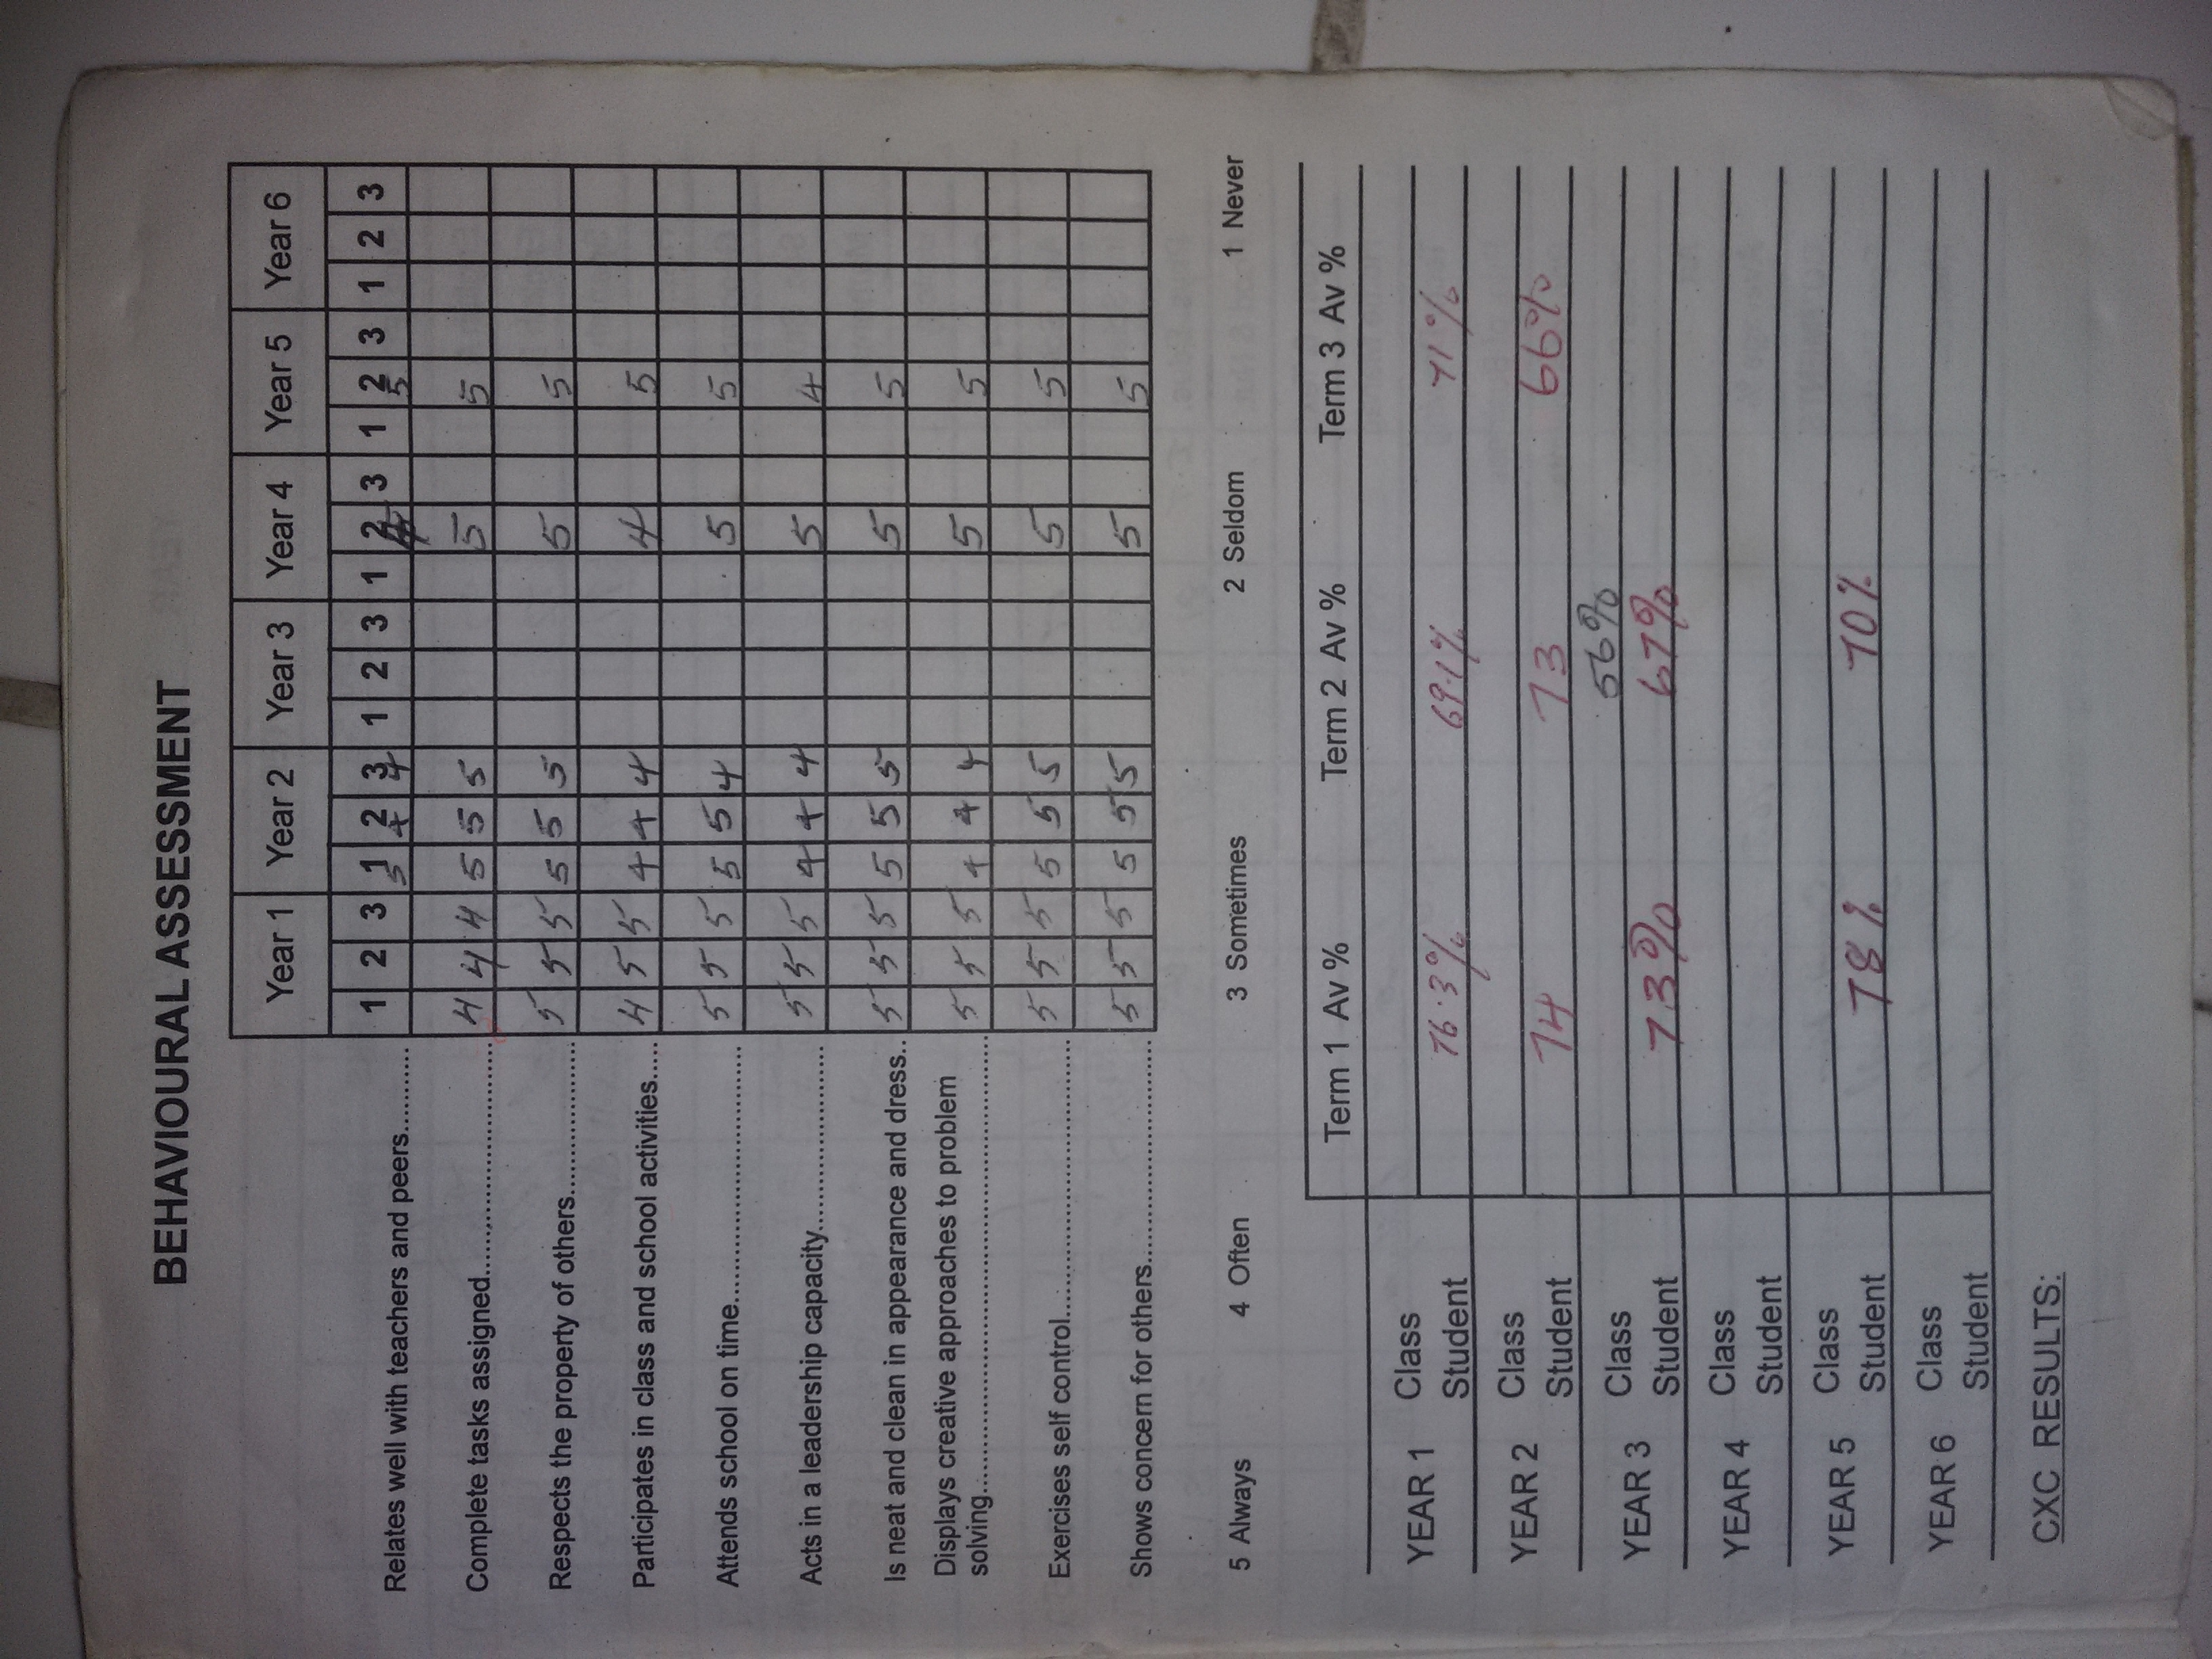 BEHAVIOURAL ASSESSMENT
Year 1 Year 2 Year 3 Year 4 Year 5 Year 6
1 2 3 1 2 3 1 2 3 1 2 3 1 2 3 1 2 3
Relates well with teachers and peers........... 5 4 4 5
Complete tasks assigned............................... 4 4 4 5 5 5 5 5
Respects the property of others.................... 5 5 5 5 5 5 5 5
Participates in class and school activities..... 4 5 5 4 4 4 4 5
Attends school on time.................................. 5 5 5 5 5 4 5 5
Acts in a leadership capacity........................ 5 5 5 4 4 4 5 4
Is neat and clean in appearance and dress.. 5 5 5 5 5 5 5 5
Displays creative approaches to problem
solving............................................................ 5 5 5 4 4 4 5 5
Exercises self control.................................... 5 5 5 5 5 5 5 5
Shows concern for others............................. 5 5 5 5 5 5 5 5
5 Always 4 Often 3 Sometimes 2 Seldom 1 Never
Term 1 Av % Term 2 Av % Term 3 Av %
YEAR 1 Class
Student 76.3% 69.1% 71%
YEAR 2 Class
Student 74 73 66%
YEAR 3 Class 56%
Student 73% 67%
YEAR 4 Class
Student
YEAR 5 Class
Student 78% 70%
YEAR 6 Class
Student
CXC RESULTS: